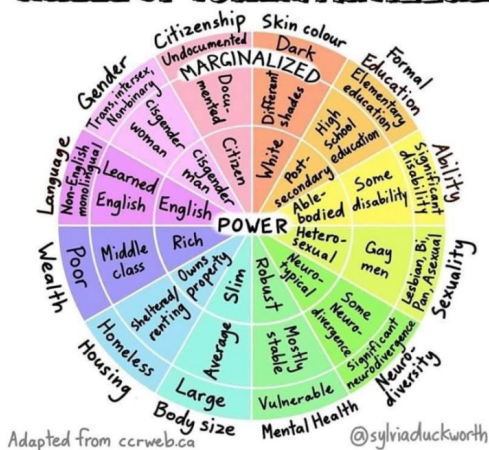 Citizenship
Undocumented
Documented
Citizen
Skin colour
Dark
Different shades
White
Formal Education
Elementary education
High School education
Post-secondary
Ability
Significant disability
Some disability
Able-bodied
Sexuality
Lesbian, Bi, Pan, Asexual
Gay men
Heterosexual
Neurodiversity
Significant neurodivergence
Some Neurodivergence
Neurotypical
Mental Health
Vulnerable
Mostly stable
Robust
Body size
Large
Average
Slim
Housing
Homeless
Sheltered/renting
Owns property
Wealth
Poor
Middle class
Rich
Language
Non-English monolingual
Learned English
English
Gender
Trans, intersex, Nonbinary
Cisgender woman
Cisgender man
MARGINALIZED
POWER
Adapted from ccrweb.ca
@sylviaduckworth